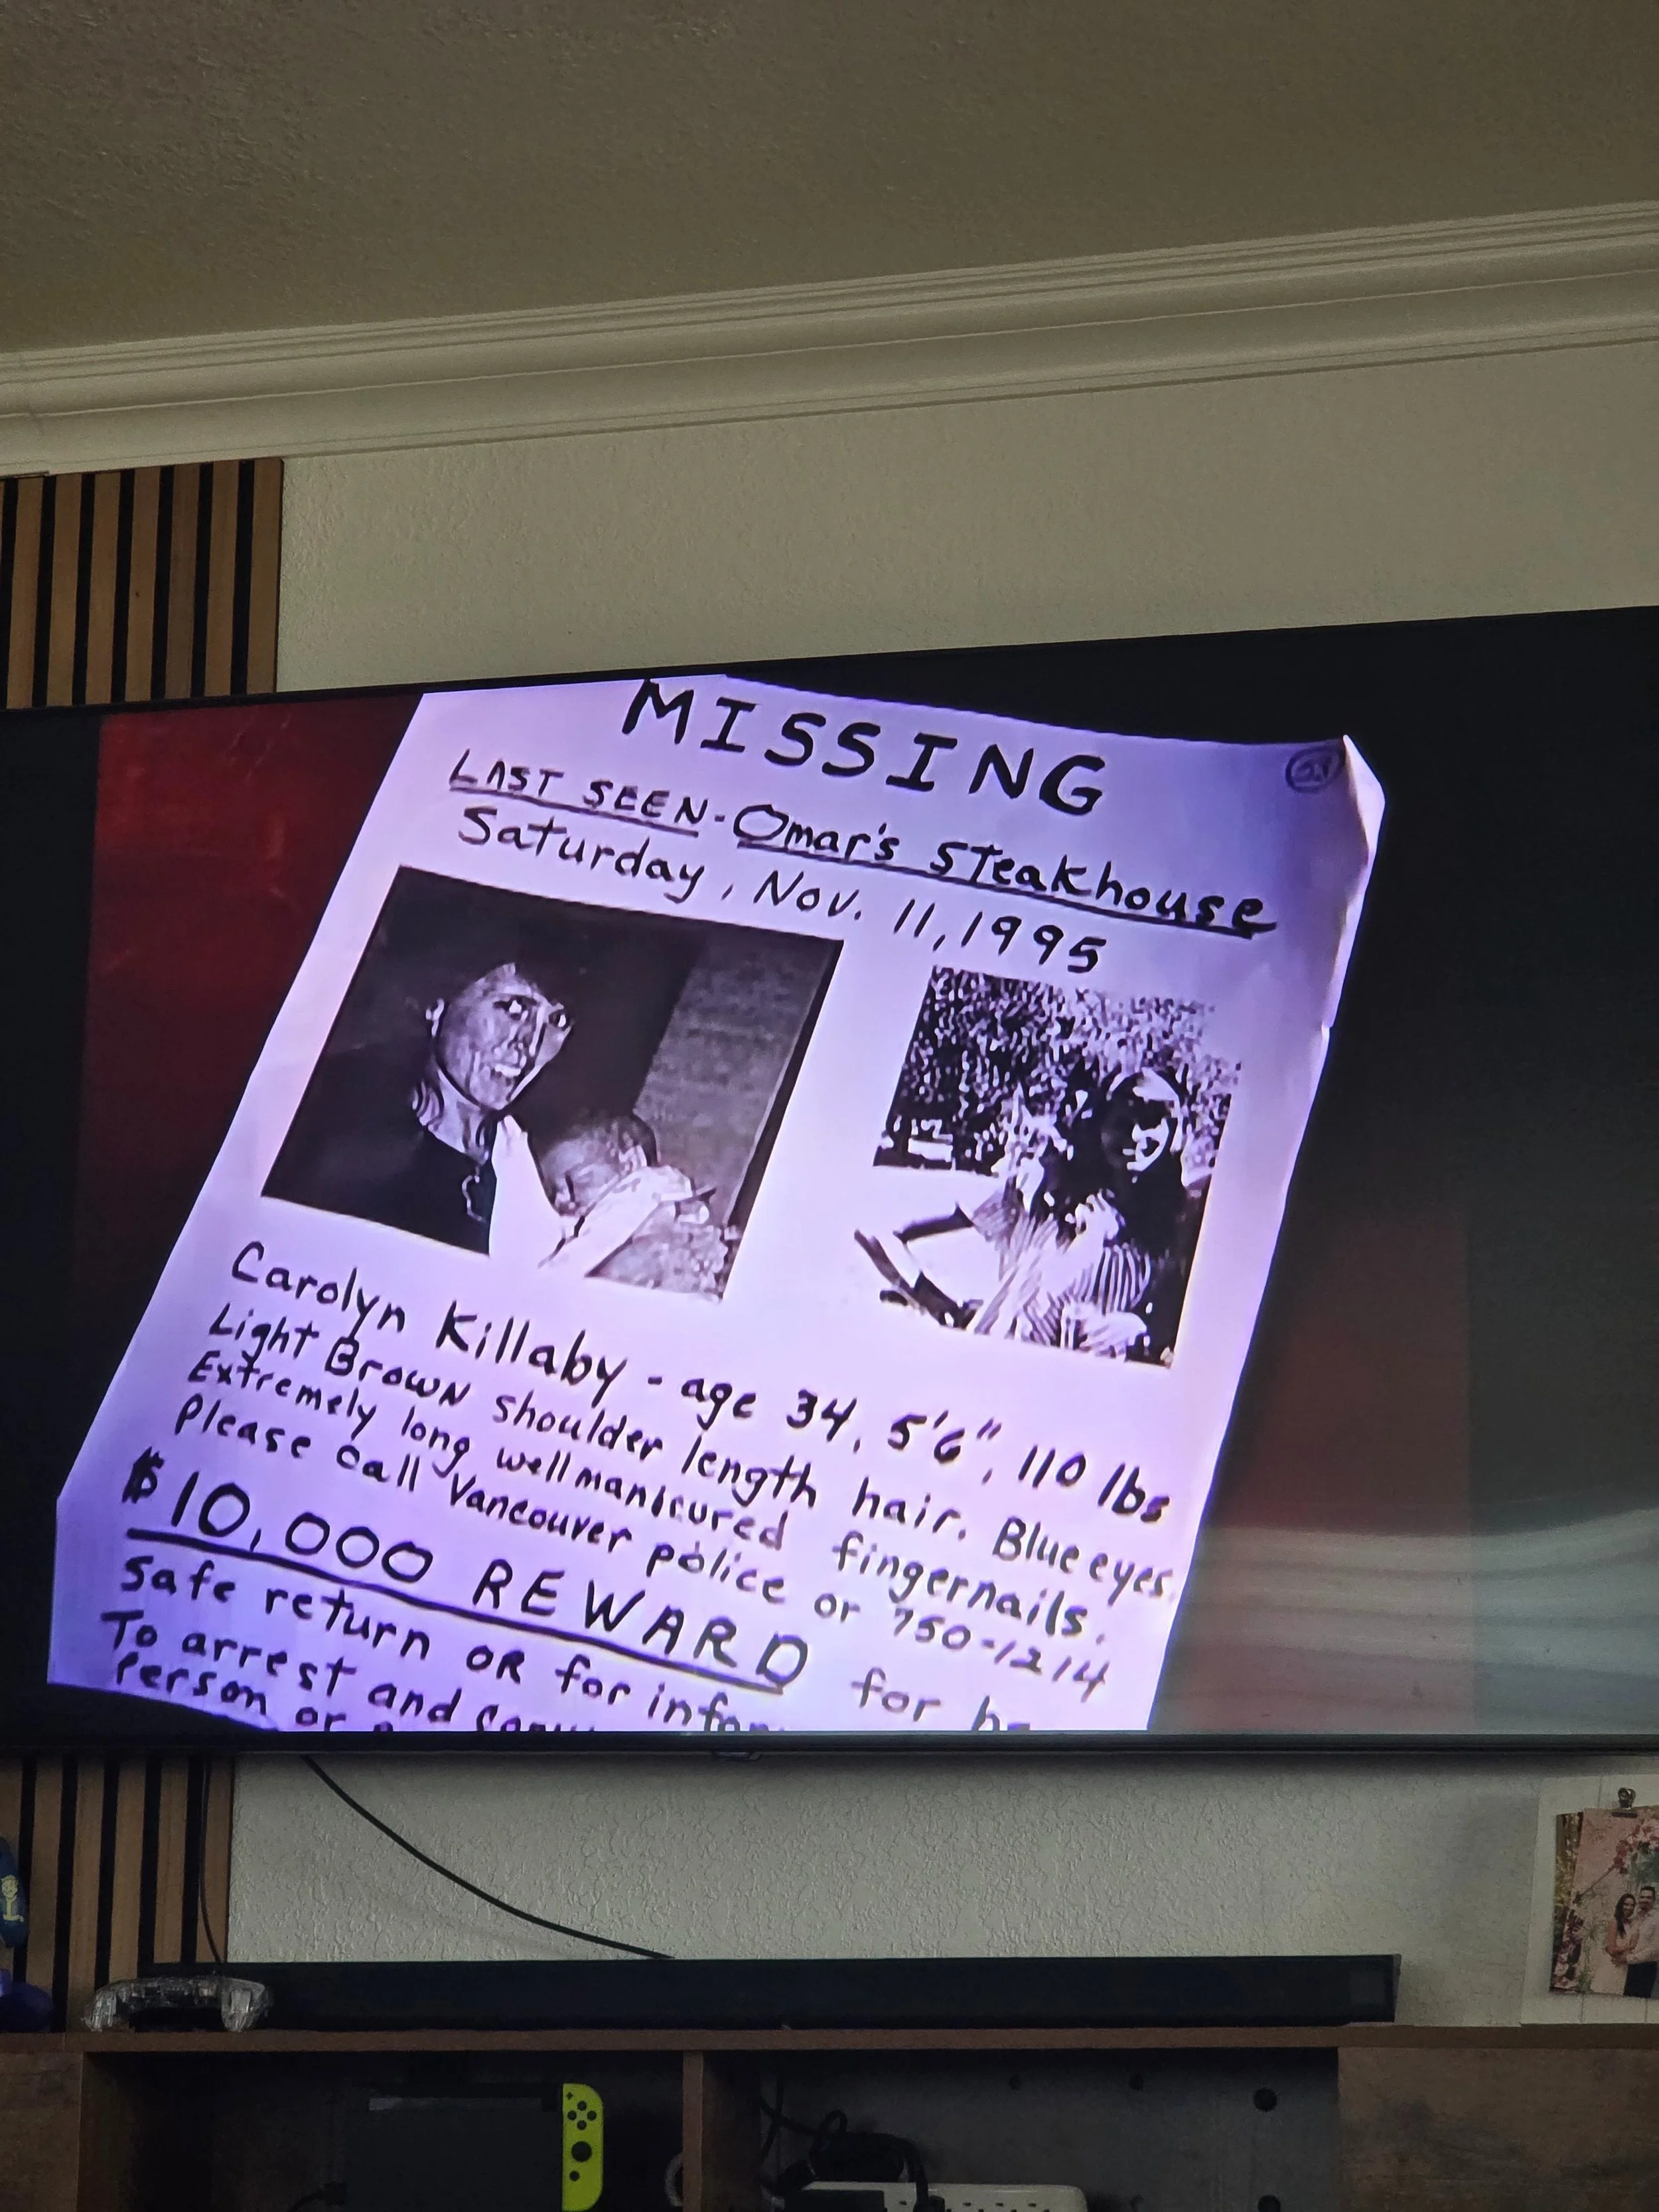 MISSING
LAST SEEN - Omar's Steakhouse
Saturday, Nov. 11, 1995
Carolyn Killaby - age 34, 5'6", 110 lbs
Light Brown shoulder length hair. Blue eyes.
Extremely long well manicured fingernails.
Please call Vancouver police or 750-1214
$10,000 REWARD for
Safe return OR for
To arrest and
Person or